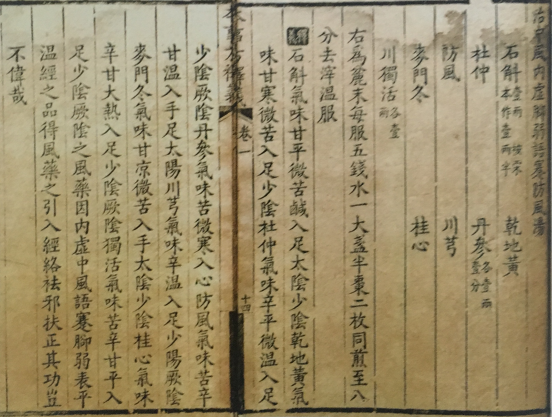 治中風內虛腳弱語蹇防風湯
石斛壹兩按宋本作壹兩半 乾地黃
杜仲 丹參各壹兩壹分
防風 川芎
麥門冬 桂心
川獨活各壹兩
右爲麄末每服五錢水一大盞半棗二枚同煎至八
分去滓溫服
釋義石斛氣味甘平微苦鹹入足太陰少陰乾地黃氣
味甘寒微苦入足少陰杜仲氣味辛平微溫入足
本事方釋義 卷一 十四
少陰厥陰丹參氣味苦微寒入心防風氣味苦辛
甘溫入手足太陽川芎氣味辛溫入足少陽厥陰
麥門冬氣味甘涼微苦入手太陰少陰桂心氣味
辛甘大熱入足少陰厥陰獨活氣味苦辛甘平入
足少陰厥陰之風藥因內虛中風語蹇腳弱表平
溫經之品得風藥之引入經絡祛邪扶正其功豈
不偉哉